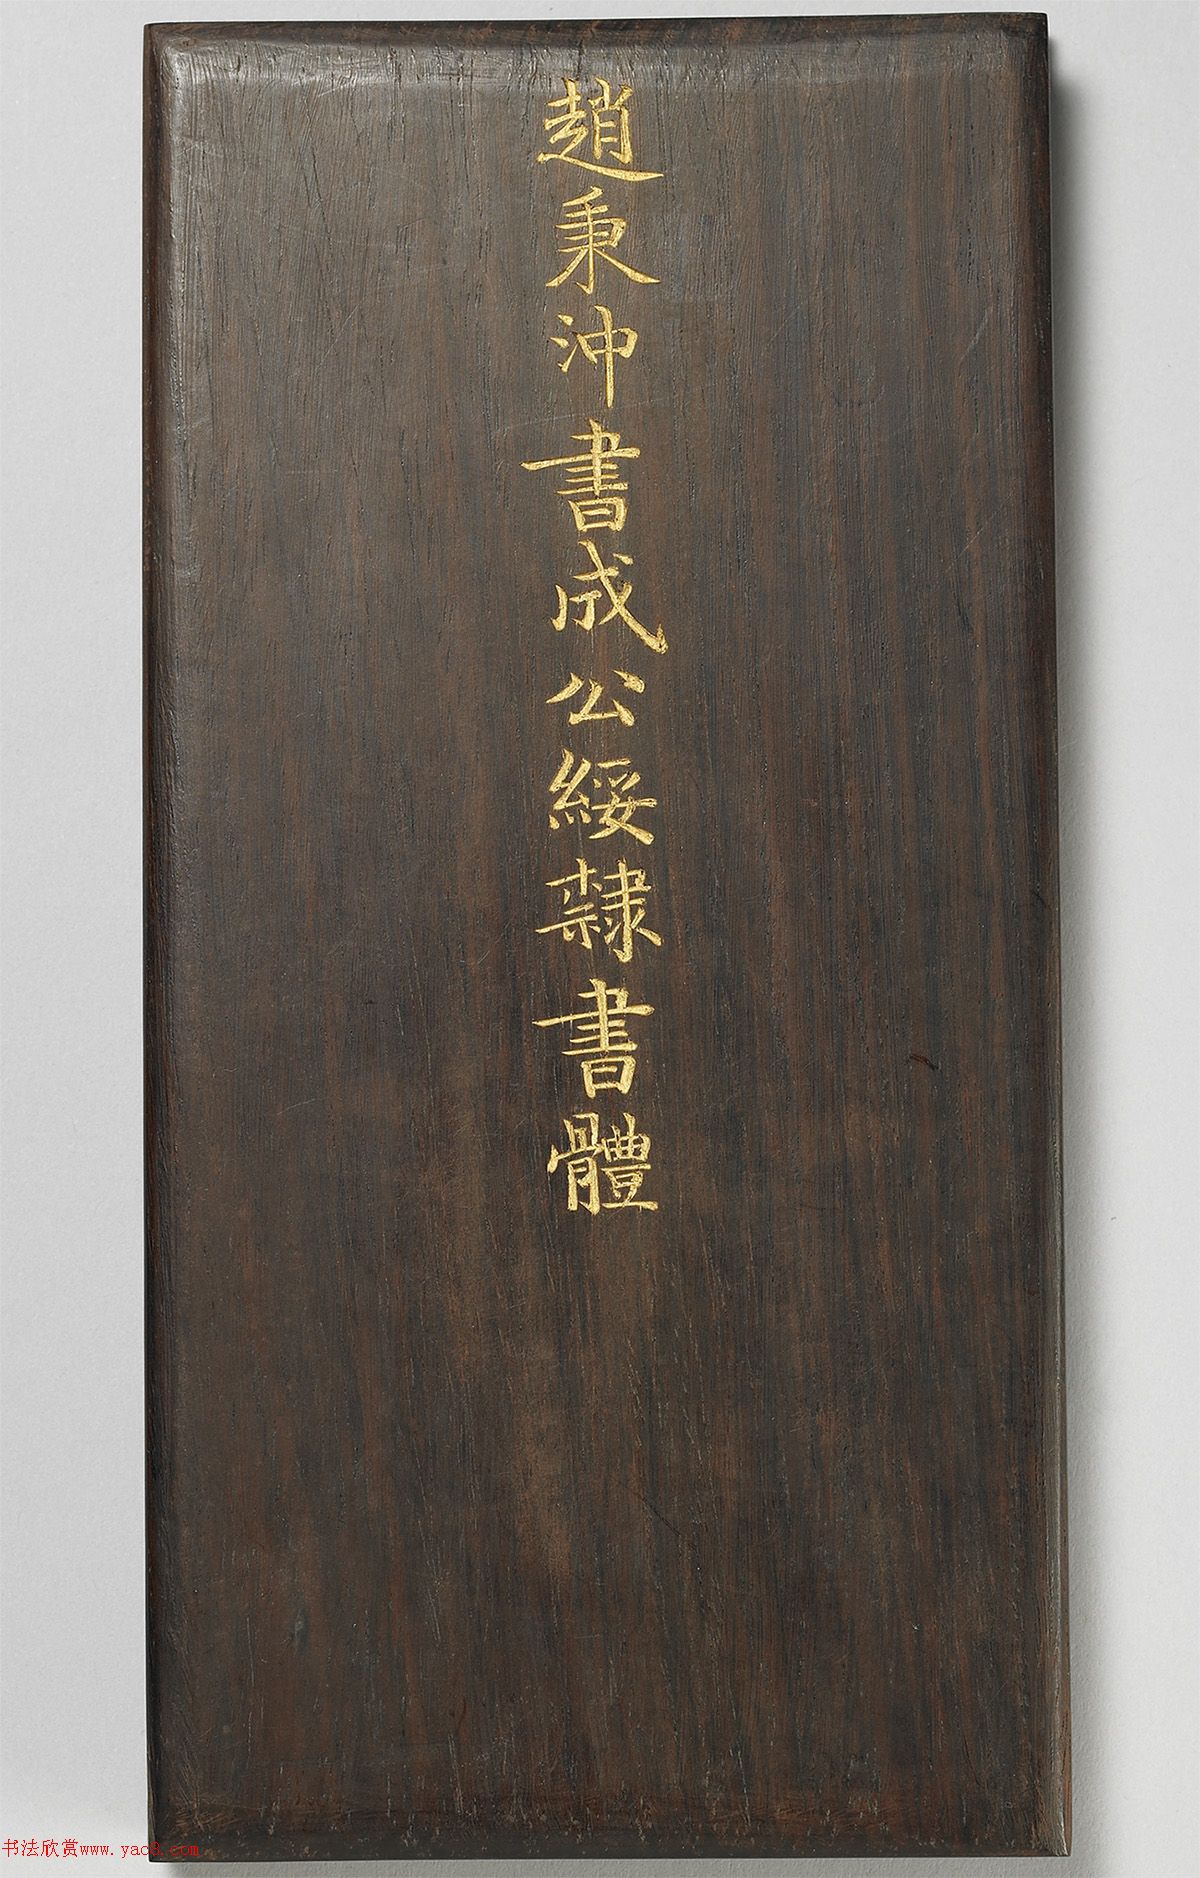 趙秉沖書成公綏隸書體
书法欣赏www.yac8.com